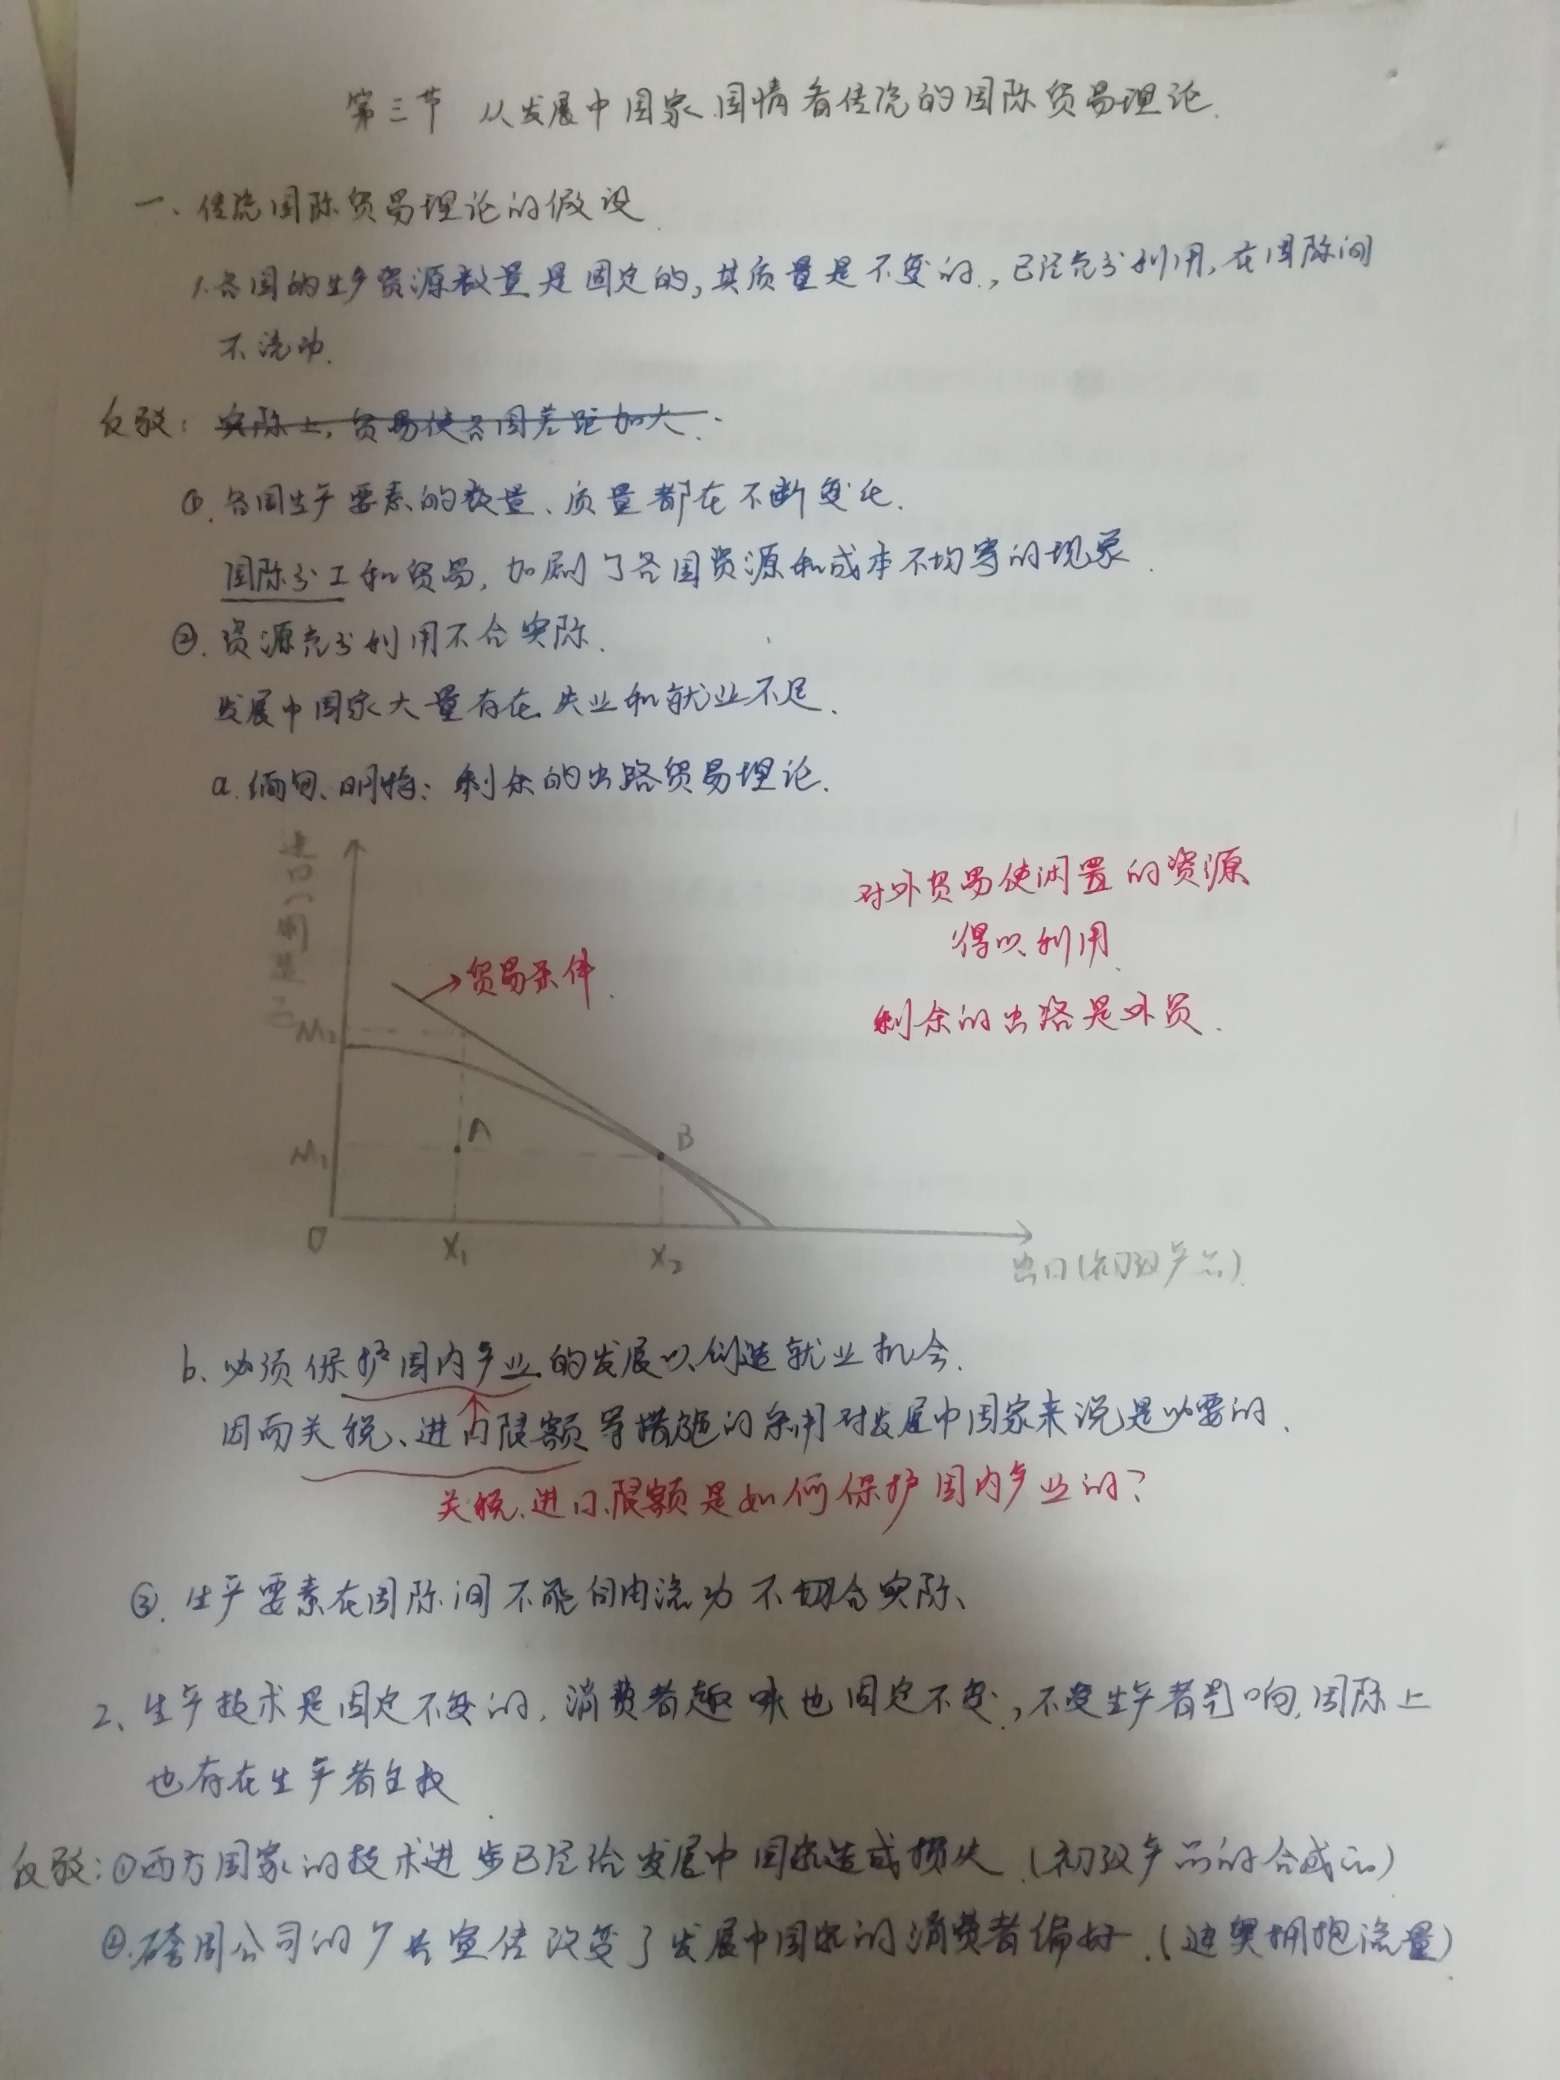 第三节 从发展中国家国情看传统的国际贸易理论.
一、传统国际贸易理论的假设
1.各国的生产资源数量是固定的,其质量是不变的,已经充分利用,在国际间
不流动.
反驳: 实际上,贸易使各国差距加大.
①.各国生产要素的数量、质量都在不断变化.
国际分工和贸易,加剧了各国资源和成本不均等的现象.
②.资源充分利用不合实际.
发展中国家大量存在失业和就业不足.
a.缅甸、明特: 剩余的出路贸易理论.
进口(制造
对外贸易使闲置的资源
得以利用
→贸易条件.
剩余的出路是外贸.
M₂
A
B
M₁
O
X₁
X₂
出口(初级产品)
b.必须保护国内产业的发展以创造就业机会.
因而关税、进口限额等措施的采用对发展中国家来说是必要的.
关税、进口限额是如何保护国内产业的?
③.生产要素在国际间不能自由流动不切合实际、
2、生产技术是固定不变的,消费者趣味也固定不变,不受生产者影响,国际上
也存在生产者主权
反驳:①西方国家的技术进步已经给发展中国家造成损失.(初级产品的合成品)
②.跨国公司的广告宣传改变了发展中国家的消费者偏好.(迪奥拥抱流量)